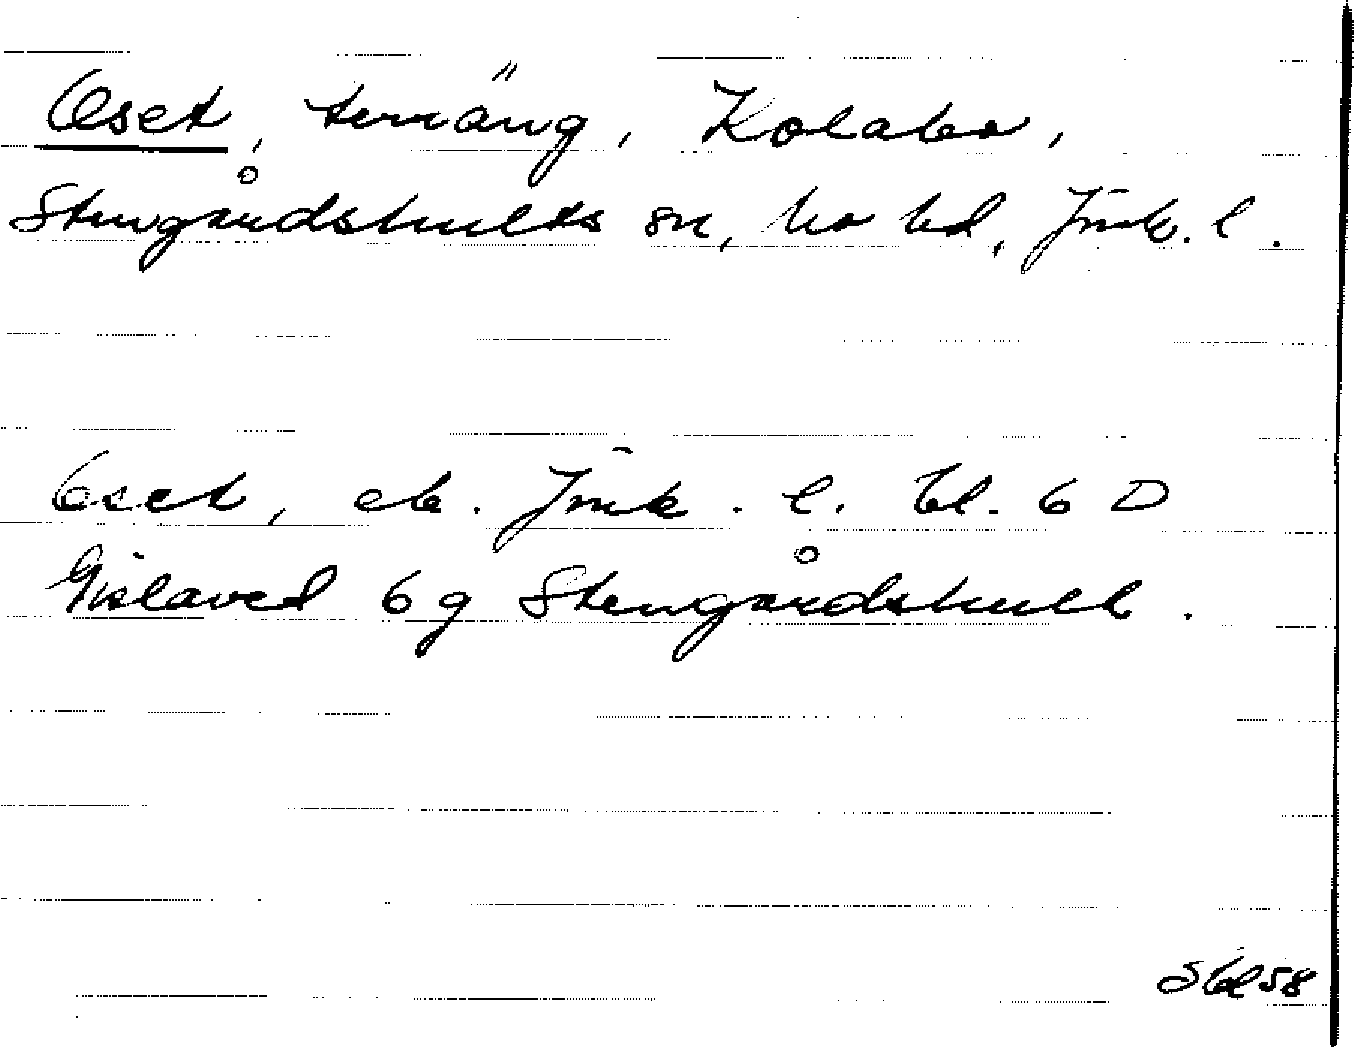 Oset, terräng, Kolabo,
Stengårdshults sn, Mo hd, Jmk. l.
Oset, ek. Jmk. l. bl. 6 D
Gislaved 6g Stengårdshult.